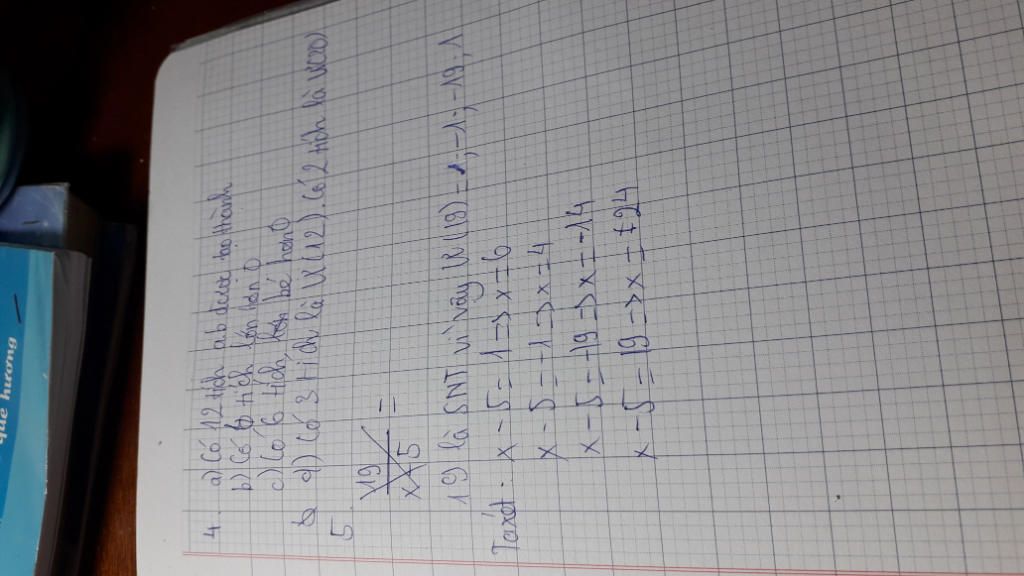 4. a) Có 12 tích ab được tạo thành
b) Có 6 tích lớn hơn 0
c) Có 6 tích bé hơn 0
d) Có 3 tích là Ư(12). Có 2 tích là Ư(20)
5. 19
x-5 =
19 là SNT vì vậy Ư(19) = 1, -1, -19, 1
Ta xét: x - 5 = 1 -> x = 6
x - 5 = -1 -> x = 4
x - 5 = -19 -> x = -14
x - 5 = 19 -> x = 24
quê hương